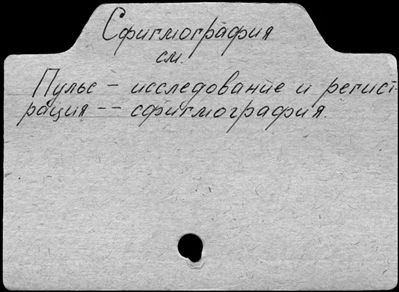 Сфигмография
см.
Пульс – исследование и регист-
рация –– сфигмография.